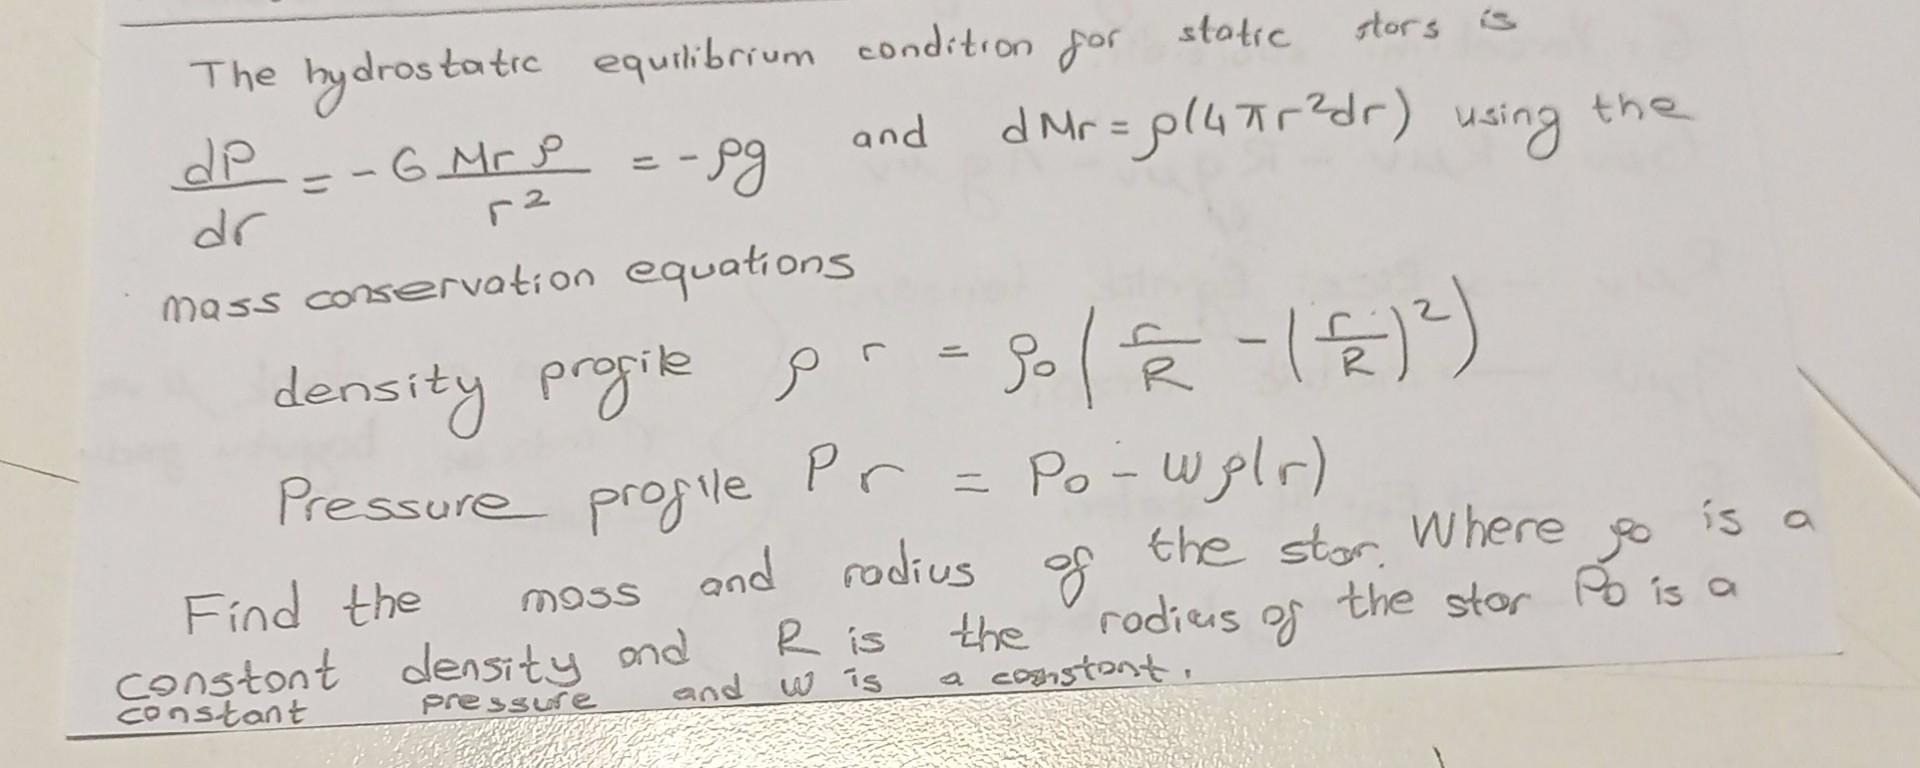 The hydrostatic equilibrium condition for static stars is
dP/dr = -G Mr ρ/r² = -ρg and dMr = ρ(4πr²dr) using the
mass conservation equations
density profile ρ r = ρ₀(r/R - (r/R)²)
Pressure profile P r = P₀ - wρ(r)
Find the mass and radius of the star. Where ρ₀ is a
constant density and R is the radius of the star P₀ is a
constant pressure and w is a constant.